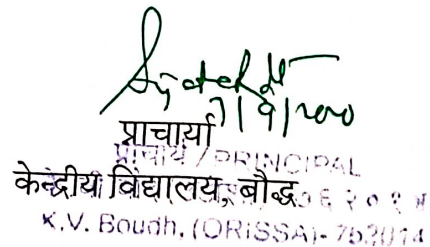 7/9/2020
प्राचार्या
प्राचार्य / PRINCIPAL
केन्द्रीय विद्यालय, बौद्ध
K.V. Boudh, (ORISSA)- 762014